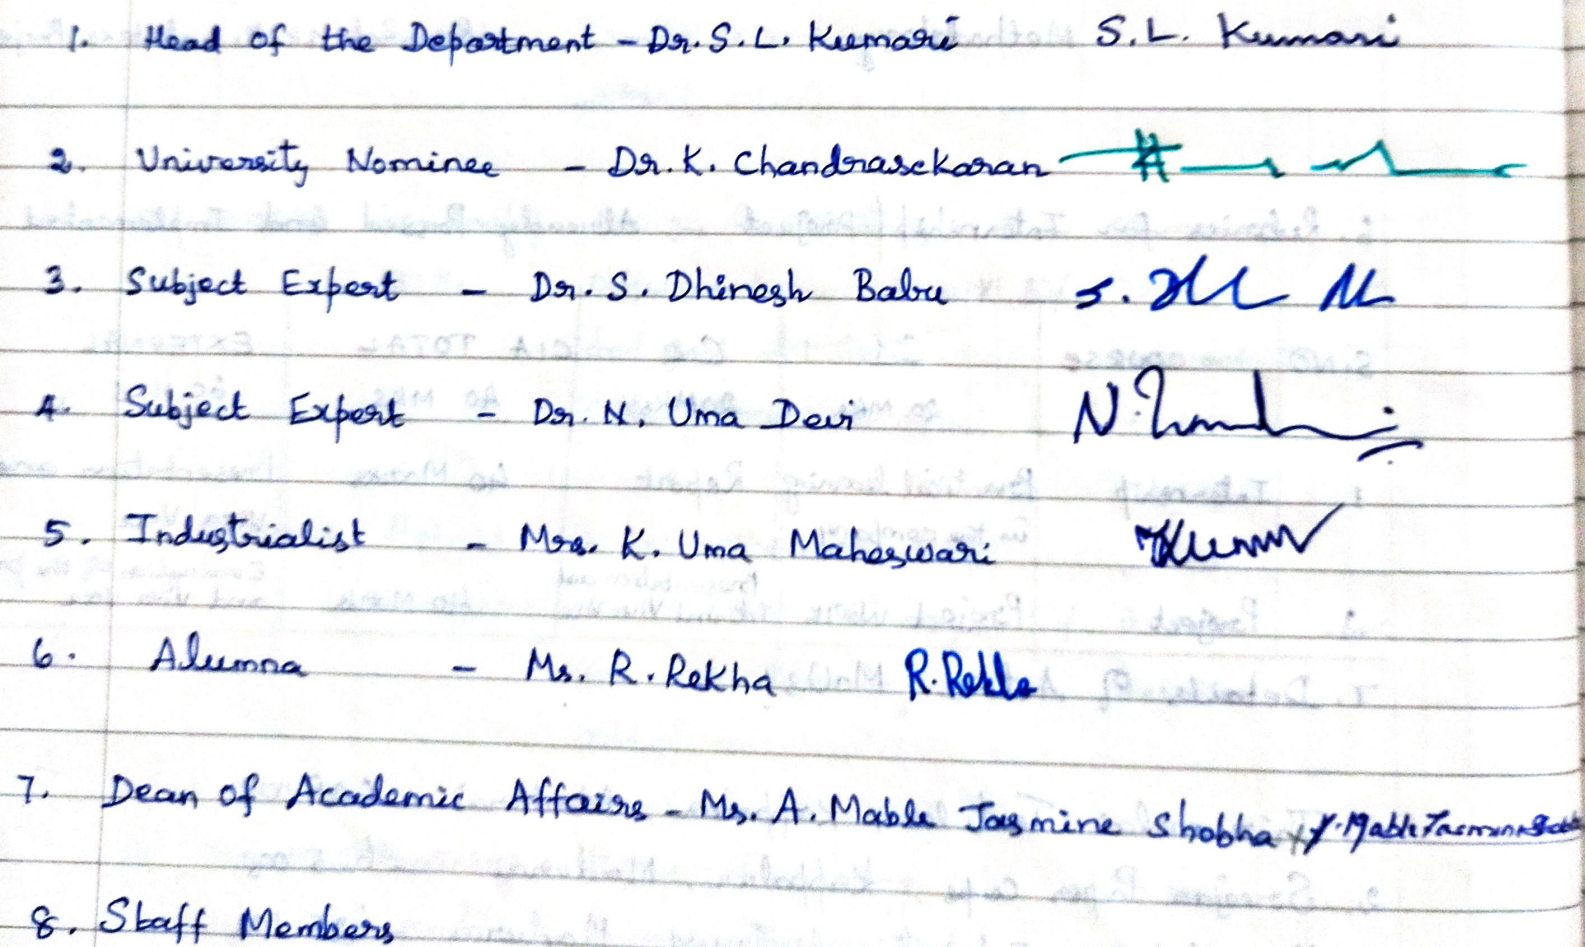 1. Head of the Department - Dr. S. L. Kumari S. L. Kumari
2. University Nominee - Dr. K. Chandrasekaran
3. Subject Expert - Dr. S. Dhinesh Babu
4. Subject Expert - Dr. N. Uma Devi
5. Industrialist - Mrs. K. Uma Maheswari
6. Alumna - Ms. R. Rekha R. Rekha
7. Dean of Academic Affairs - Ms. A. Mable Jasmine Shobha
8. Staff Members